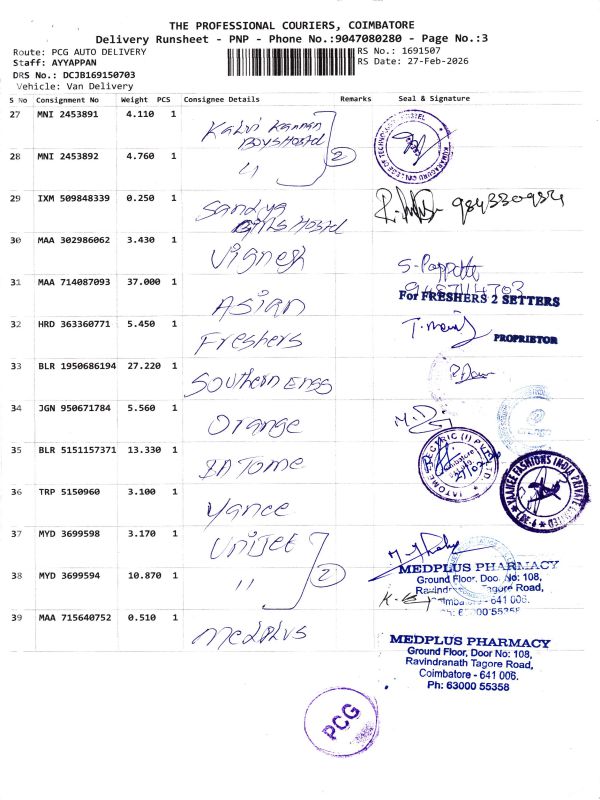 THE PROFESSIONAL COURIERS, COIMBATORE
Delivery Runsheet - PNP - Phone No.:9047080280 - Page No.:3
Route: PCG AUTO DELIVERY
Staff: AYYAPPAN
DRS No.: DCJB169150703
Vehicle: Van Delivery
RS No.: 1691507
RS Date: 27-Feb-2026
S No Consignment No Weight PCS Consignee Details Remarks Seal & Signature
27 MNI 2453891 4.110 1 Kalvi Kannan Boys Hostel
28 MNI 2453892 4.760 1 " 2
29 IXM 509848339 0.250 1 Sandya Girls Hostel
30 MAA 302986062 3.430 1 Vignesh
31 MAA 714087093 37.000 1 Asian
For FRESHERS 2 SETTERS
32 HRD 363360771 5.450 1 Freshers
PROPRIETOR
33 BLR 1950686194 27.220 1 Southern Engg
34 JGN 950671784 5.560 1 Orange
35 BLR 5151157371 13.330 1 IATome
36 TRP 5150960 3.100 1 Yance
37 MYD 3699598 3.170 1 Unijet
38 MYD 3699594 10.870 1 " 2
MEDPLUS PHARMACY
Ground Floor, Door No: 108,
39 MAA 715640752 0.510 1 Medplus
MEDPLUS PHARMACY
Ground Floor, Door No: 108,
Ravindranath Tagore Road,
Coimbatore - 641 006.
Ph: 63000 55358
PCG